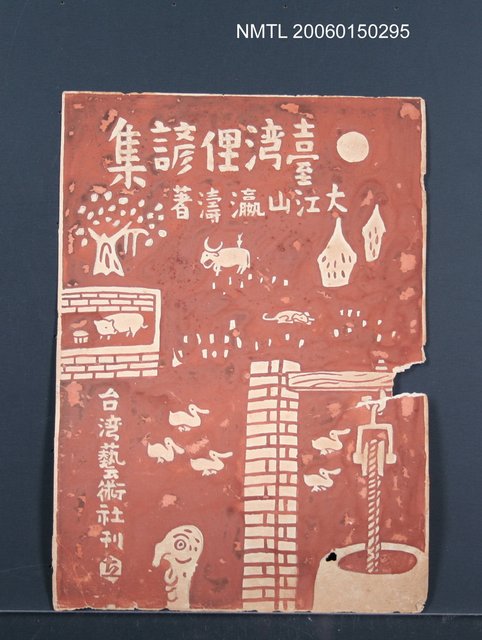 NMTL 20060150295
臺湾俚諺集
大江山瀛濤著
台湾藝術社刊